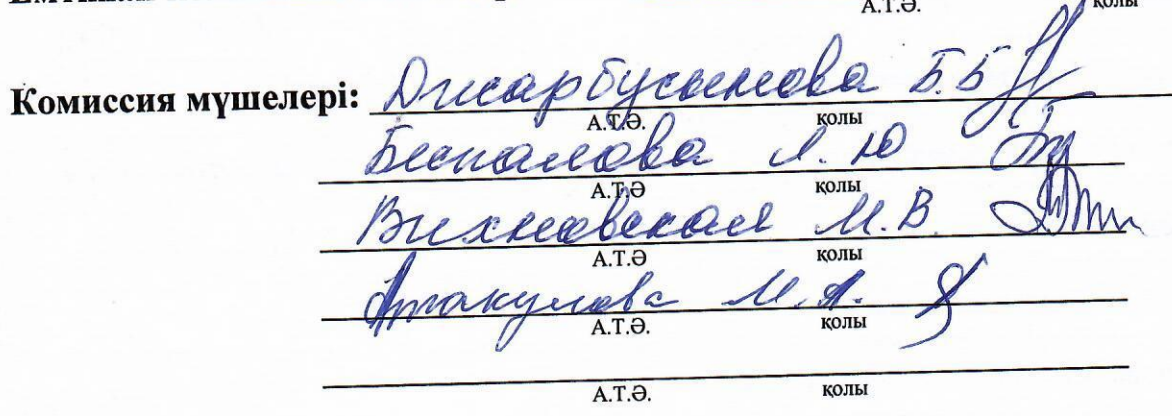 А.Т.Ә. қолы
Комиссия мүшелері: Джарбусынова Б.Б
А.Т.Ә. қолы
Беспалова Л. Ю
А.Т.Ә қолы
Вихновская М.В.
А.Т.Ә қолы
Атакулова М.А.
А.Т.Ә. қолы
А.Т.Ә. қолы